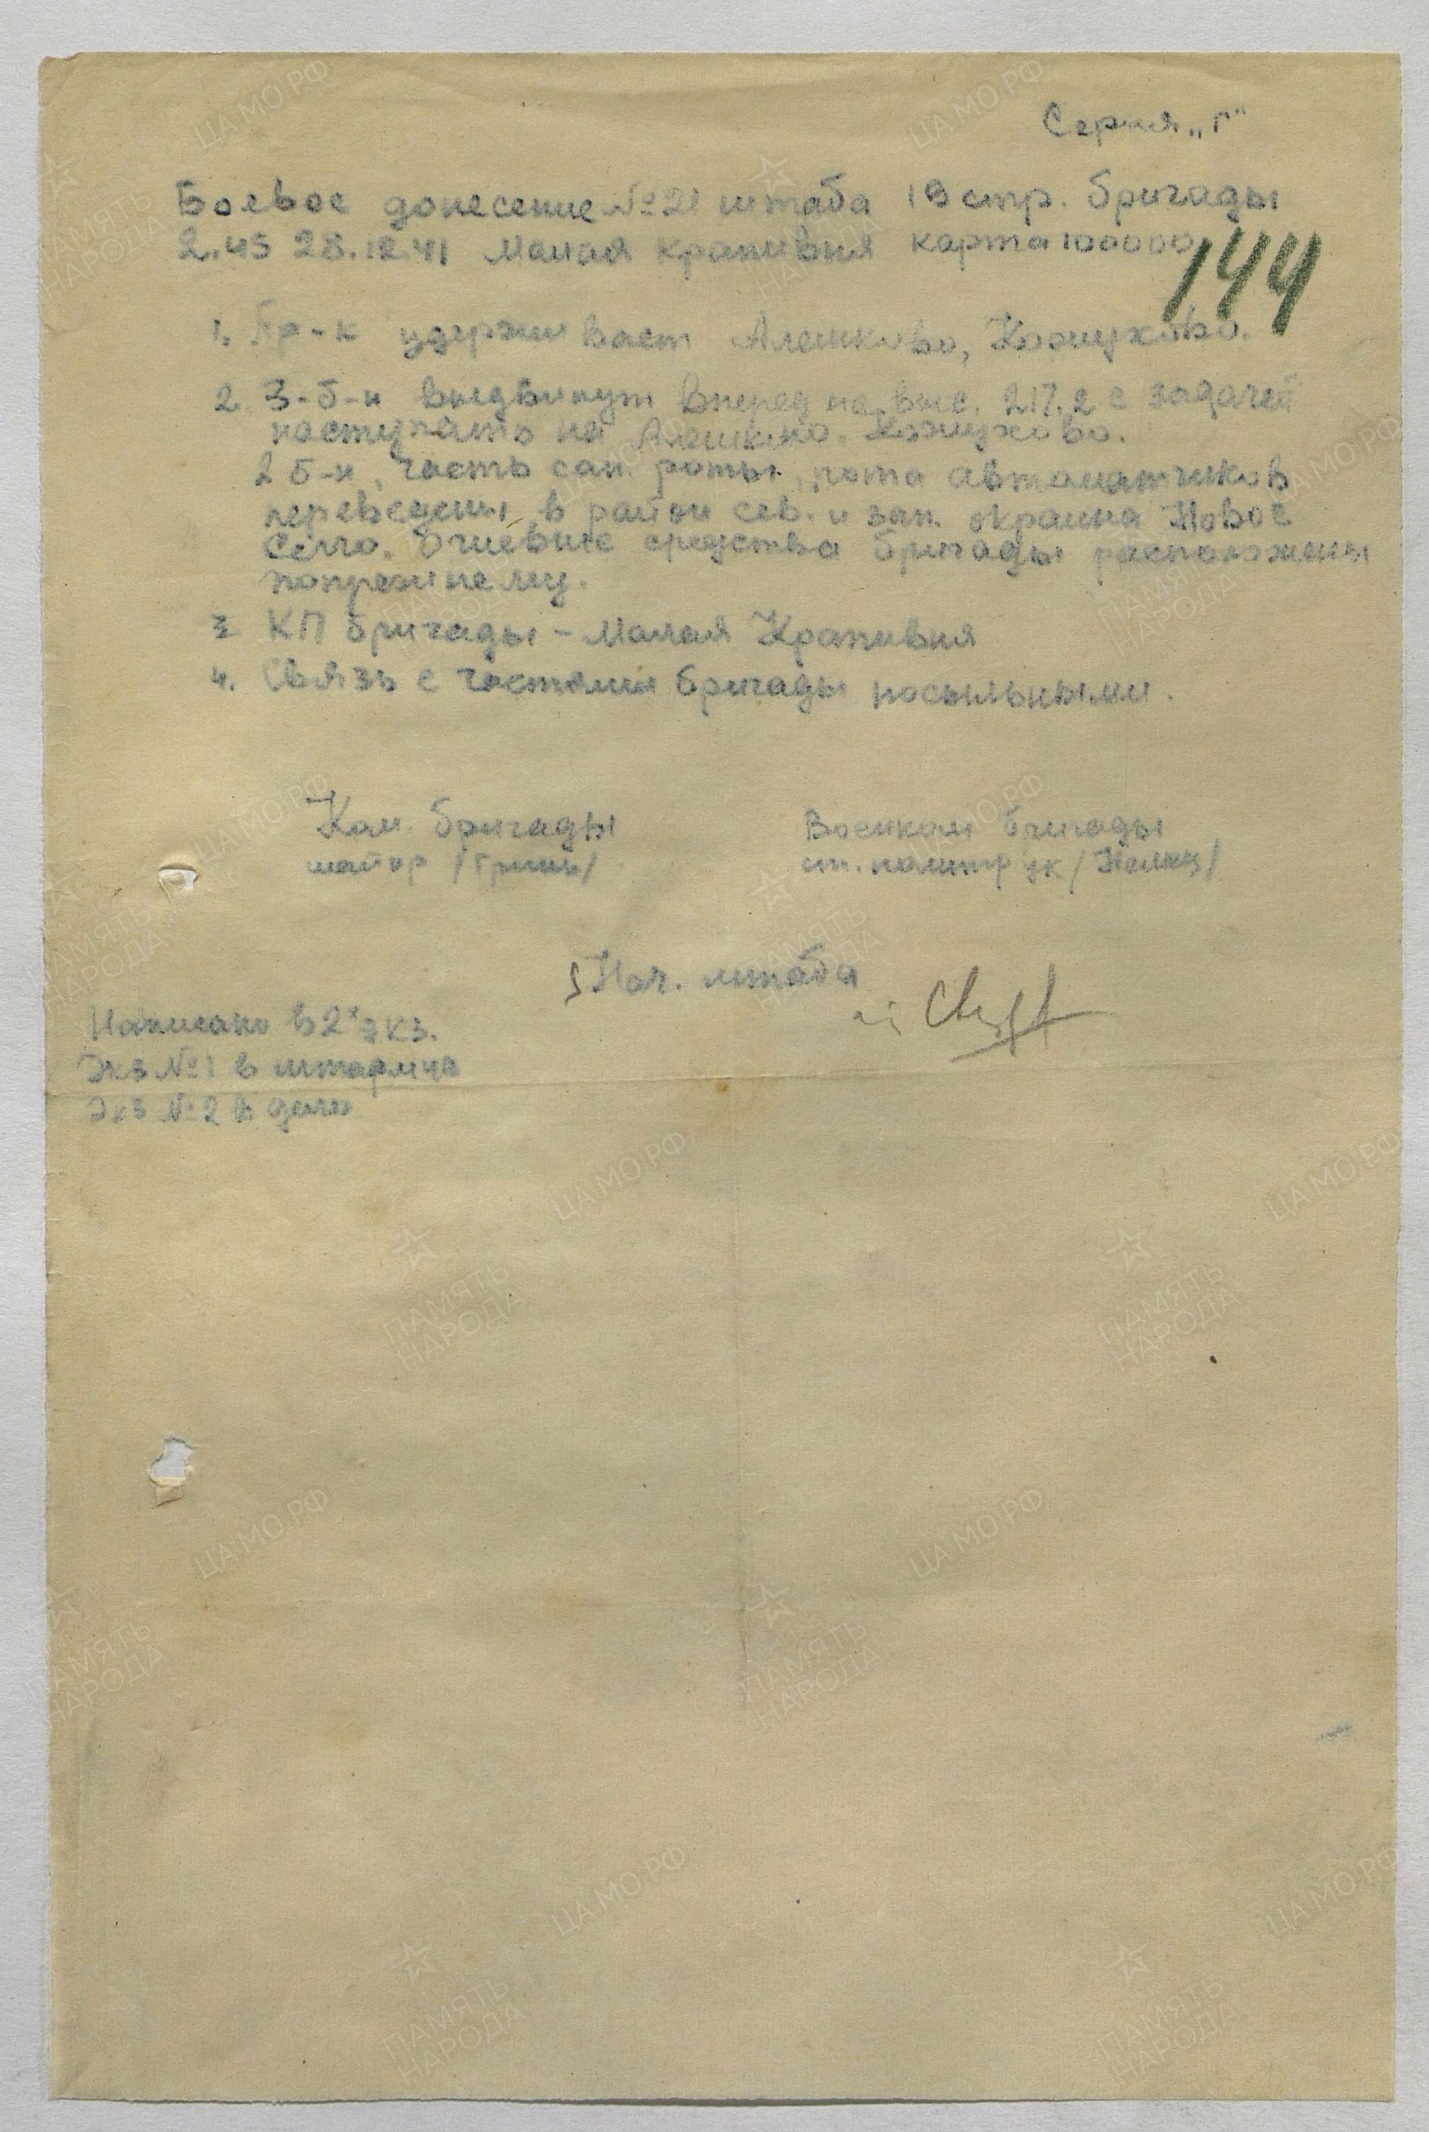 Серия „Г"
Боевое донесение №21 штаба 19 стр. бригады
2.45 28.12.41 Малая Крапивня карта 100000
144
1. Пр-к удерживает Алешково, Кожухово.
2. 3-б-н выдвинут вперед на выс. 217.2 с задачей
наступать на Алешково, Кожухово.
2 б-н, часть сап. роты, рота автоматчиков
переведены в район сев. и зап. окраина Новое
Село. Огневые средства бригады расположены
попрежнему.
3. КП бригады - Малая Крапивня
4. Связь с частями бригады посыльными.
Ком. бригады
майор /Гринь/
Военком бригады
ст. политрук
Нач. штаба
Написано в 2х экз.
Экз №1 в штарм 49
Экз №2 в дело